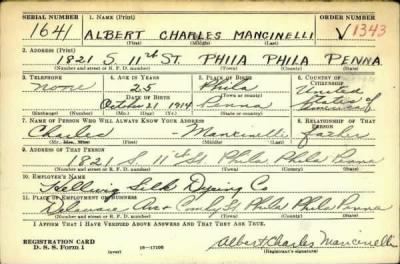 SERIAL NUMBER 1. NAME (Print) ORDER NUMBER
1641 ALBERT CHARLES MANCINELLI V1343
(First) (Middle) (Last)
2. ADDRESS (Print)
1821 S. 11th ST. PHIIA PHILA PENNA
(Number and street or R. F. D. number) (Town) (County) (State)
3. TELEPHONE 4. AGE IN YEARS 5. PLACE OF BIRTH 6. COUNTRY OF CITIZENSHIP
none 25 Phila United
DATE OF BIRTH (Town or county) States of
October 21 1914 Penna America
(Exchange) (Number) (Mo.) (Day) (Yr.) (State or country)
7. NAME OF PERSON WHO WILL ALWAYS KNOW YOUR ADDRESS 8. RELATIONSHIP OF THAT PERSON
Charles - Mancinelli father
(Mr., Mrs., Miss) (First) (Middle) (Last)
9. ADDRESS OF THAT PERSON
1821 S. 11th St Phila Phila Penna
(Number and street or R. F. D. number) (Town) (County) (State)
10. EMPLOYER'S NAME
Hellwig Silk Dyeing Co
11. PLACE OF EMPLOYMENT OR BUSINESS
Delaware Ave + Comly St Phila Phila Penna
(Number and street or R. F. D. number) (Town) (County) (State)
I AFFIRM THAT I HAVE VERIFIED ABOVE ANSWERS AND THAT THEY ARE TRUE.
REGISTRATION CARD
D. S. S. FORM 1 (over) 16-17105 Albert Charles Mancinelli
(Registrant's signature)